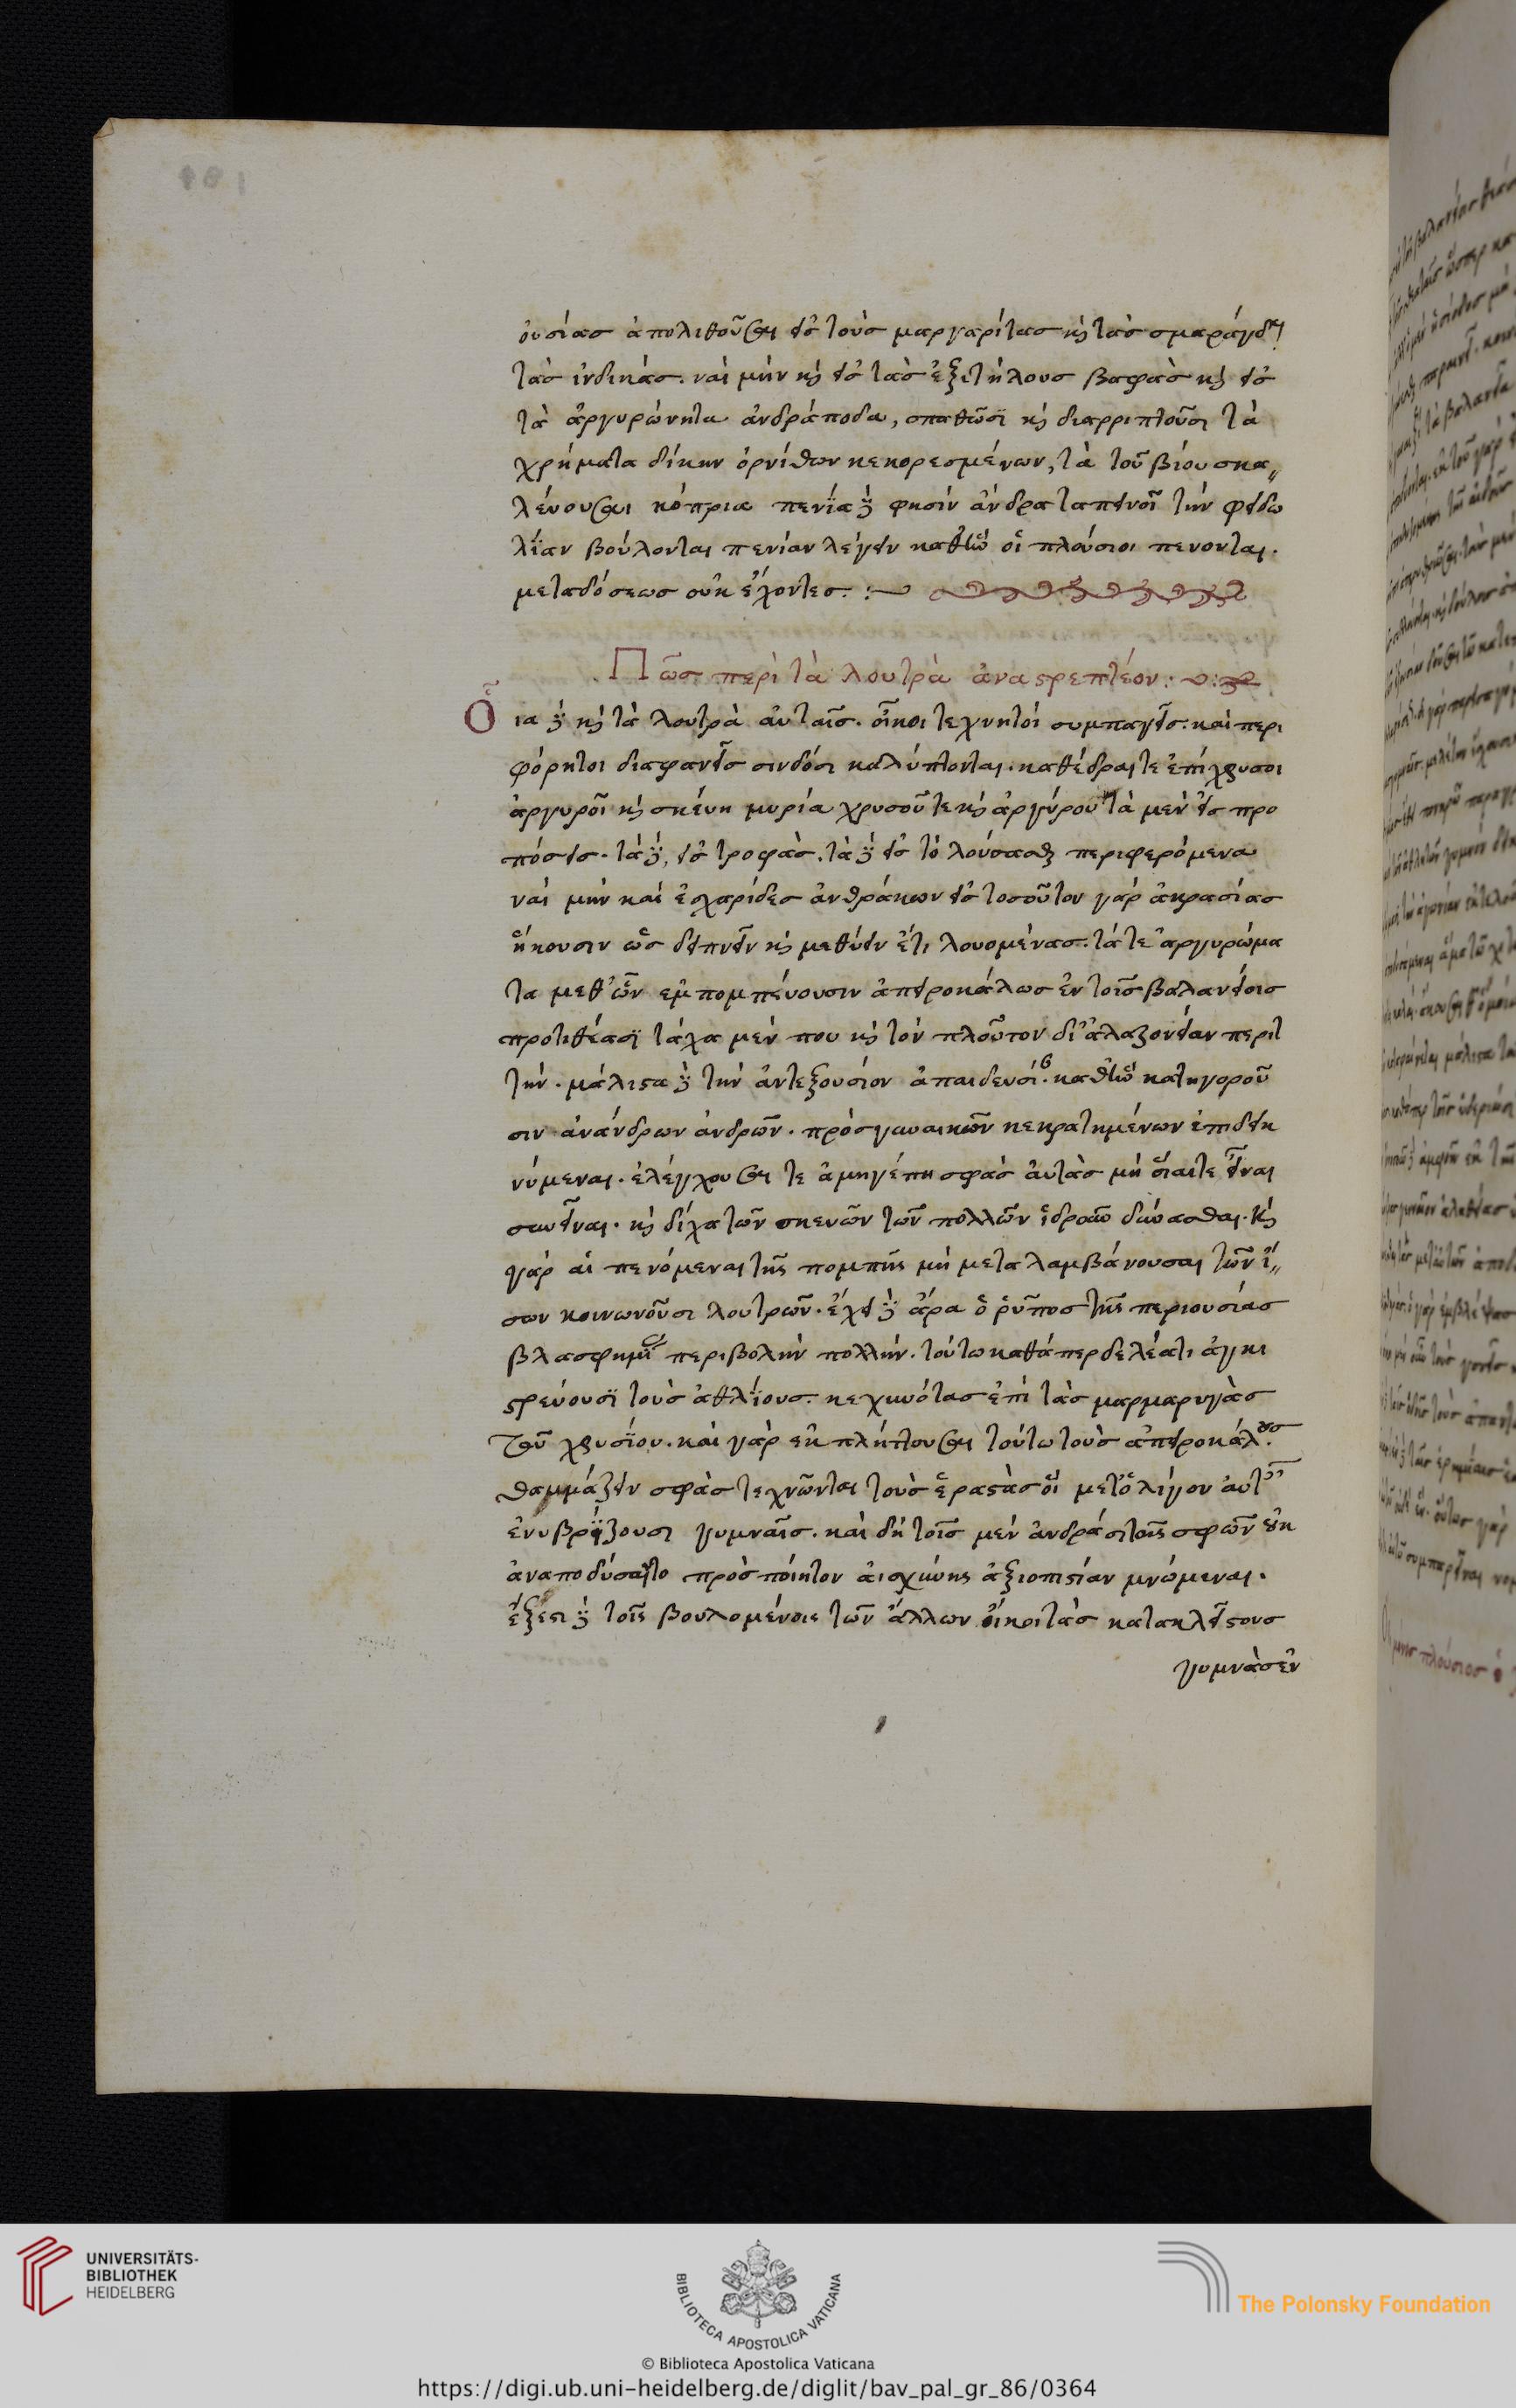 οὐσίας ἀπολιθοῦσαι εἰς τοὺς μαργαρίτας κỳ τὰς σμαράγδους
τὰς ἰνδικάς. ναὶ μὴν κỳ εἰς τὰς ἐξιτήλους βαφὰς κỳ εἰς
τὰ ἀργυρώνητα ἀνδράποδα, σπαθῶσϊ κỳ διαρριπτοῦσι τὰ
χρήματα δίκην ὀρνίθων κεκορεσμένων, τὰ τοῦ βίου σκα〃
λεύουσαι κόπρια πενΐα δὲ φησὶν ἄνδρα ταπεινοῖ τὴν φειδω
λΐαν βούλονται πενίαν λέγειν καθ' ἣν οἱ πλούσιοι πενονται.
μεταδόσεως οὐκ ἔχοντες :~
Πῶς περὶ τὰ λουτρὰ ἀναστρεπτέον :~
Οἷα δὲ κỳ τὰ λουτρὰ αὐταῖς. οἶκοι τεχνητοὶ συμπαγεῖς. καὶ περι
φόρητοι διαφανεῖς σινδόσι καλύπτονται. καθέδραι τε ἐπίχρυσοι
ἀργυροῖ κỳ σκεύη μυρία χρυσοῦ τε κỳ ἀργύρου τὰ μὲν εἰς προ
πόσεις. τὰ δὲ, εἰς τροφὰς. τὰ δὲ εἰς τὸ λούσασθαι περιφερόμενα
ναὶ μὴν καὶ ἐσχαρίδες ἀνθράκων εἰς τοσοῦτον γὰρ ἀκρασίας
ἥκουσιν ὡς δειπνεῖν κỳ μεθύειν ἔτι λουομένας. τά τε ἀργυρώμα
τα μεθ' ὧν ἐμπομπεύουσιν ἀπειροκάλως ἐν τοῖς βαλανείοις
προτιθέασϊ τάχα μέν που κỳ τὸν πλοῦτον δι' ἀλαζονείαν περιτ
τήν. μάλιστα δὲ τὴν ἀντεξουσίον ἀπαιδευσίαν. καθ' ἣν κατηγοροῦ
σιν ἀνάνδρων ἀνδρῶν. πρὸς γυναικῶν κεκρατημένων ἐπιδεικ
νύμεναι. ἐλέγχουσαι τε ἀμηγέπη σφὰς αὐτὰς μὴ οἷαι τε εἶναι
συνεῖναι. κỳ δίχα τῶν σκευῶν τῶν πολλῶν ἱδροῦν δύνασθαι. κỳ
γὰρ αἱ πενόμεναι τῆς πομπῆς μὴ μεταλαμβάνουσαι τῶν ἴ〃
σων κοινωνοῦσι λουτρῶν. ἔχει δὲ ἄρα ὁ ῥῦπος τῆς περιουσίας
βλασφημίας περιβολὴν πολλήν. τούτω καθάπερ δελέατι ἀγκι
στρεύουσϊ τοὺς ἀθλΐους. κεχηνότας ἐπὶ τὰς μαρμαρυγὰς
τοῦ χρυσΐου. καὶ γὰρ ἐκπλήττουσαι τούτω τοὺς ἀπειροκάλους
θαυμάζειν σφὰς τεχνῶνται τοὺς ἐραστὰς οἳ μετ' ὀλίγον αὐταῖς
ἐνυβρΐζουσι γυμναῖς. καὶ δὴ τοῖς μὲν ἀνδράσι τοῖς σφῶν οὐκ
ἀναποδύσαιτο προσποίητον αἰσχύνης ἀξιοπιστίαν μνώμεναι.
ἔξεστι δὲ τοῖς βουλομένοις τῶν ἄλλων οἴκοι τὰς κατακλείστους
γυμνὰς ἐν
UNIVERSITÄTS-
BIBLIOTHEK
HEIDELBERG
BIBLIOTECA APOSTOLICA VATICANA
The Polonsky Foundation
© Biblioteca Apostolica Vaticana
https://digi.ub.uni-heidelberg.de/diglit/bav_pal_gr_86/0364